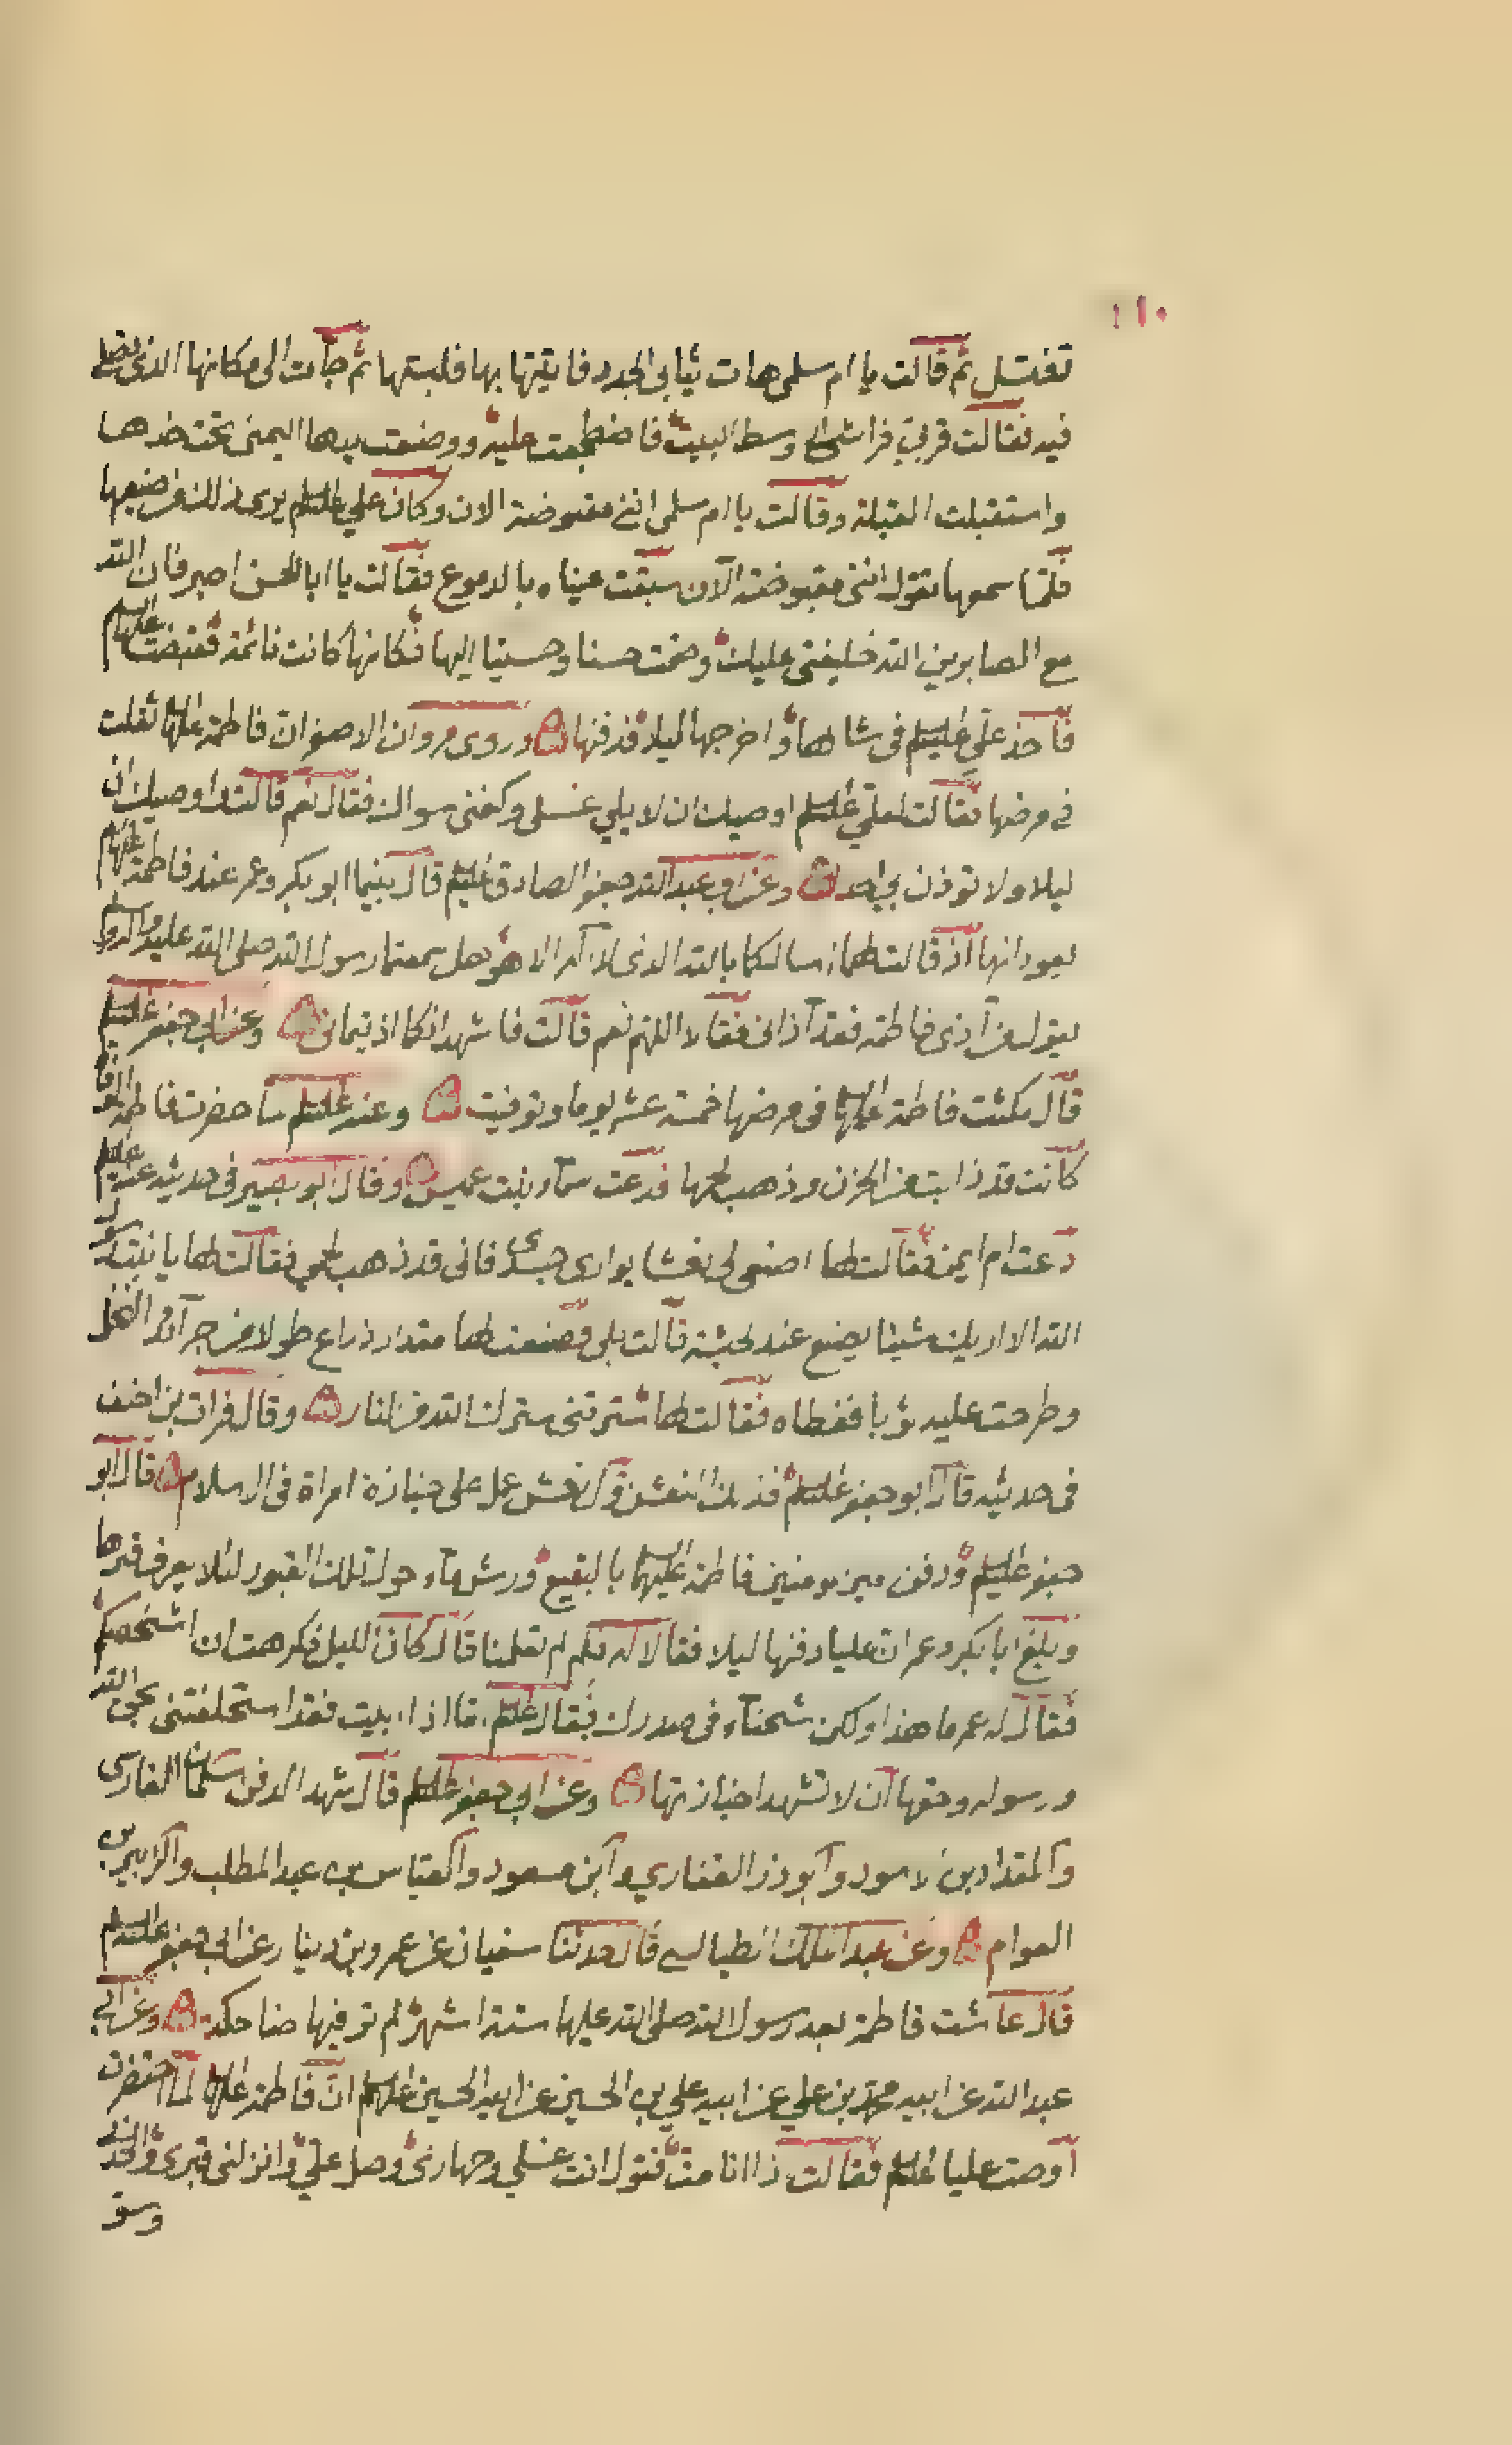 ١١٠
تغتسل ثم قالت يا ام سلمى هات ثيابى الجدد فاتيتها بها فلبستها ثم جآت الى مكانها الذى تصلى
فيه فقالت قربى فراشى الى وسط البيت فاضطجعت عليه ووضعت يدها اليمنى تحت خدها
واستقبلت القبلة وقالت يا ام سلمى اننى مقبوضة الان وكان علي عليه السلم يرى ذلك من صنيعها
فلما سمعها تقول اننى مقبوضة الآن سبقت عيناه بالدموع فقالت يا ابا الحسن اصبر فان الله
مع الصابرين الله خليفتى عليك وضمت حسنا وحسينا اليها فكانها كانت نائمة فقبضت عليها السلم
فاخذ علي عليه السلم فى شانها واخرجها ليلا فدفنها وروى مروان الاصفر ان فاطمة عليها السلم ثقلت
فى مرضها فقالت لعلي عليه السلم اوصيك ان لا يلي غسلى وكفنى سواك فقال نعم قالت واوصيك ان
ليلا ولا توذن بي احد وعن ابى عبد الله جعفر الصادق عليه السلم قال بينما ابو بكر وعمر عند فاطمة عليها السلم
يعودانها اذ قالت لهما اسالكما بالله الذى لا اله الا هو هل سمعتما رسول الله صلى الله عليه واله وسلم
يقول من آذى فاطمة فقد آذانى فقالا اللهم نعم قالت فاشهد انكما اذيتمانى وعن ابى جعفر عليه السلم
قال مكثت فاطمة عليها السلم فى مرضها خمسة عشر يوما وتوفيت وعنه عليه السلم لما حضرت فاطمة الوفاة
كانت قد ذابت من الحزن وذهب لحمها فدعت سمآء بنت عميس وقال ابو بصير فى حديثه عنه عليه السلم
دعت ام ايمن فقالت لها اصنعى لى نعشا يوارى جسدى فانى قد ذهب لحمي فقالت لها يا ابنة رسول
الله الا اريك شيئا يصنع عند لحبشة قالت بلى فصنعت لها مقدار ذراع طولا من جرآئد النخل
وطرحت عليه ثوبا فغطاه فقالت لها سترتنى سترك الله من النار وقال فرات بن احنف
فى حديثه قال ابو جعفر عليه السلم فذلك النعش اول نعش عمل على جنازة امراة فى الاسلام قال ابو
جعفر عليه السلم ودفن امير المومنين فاطمة عليها السلم بالبقيع ورش مآء حول تلك القبور لئلا يعرف قبرها
وبلغ ابا بكر وعمر ان عليا دفنها ليلا فقالا له فلم لم تعلمنا قال كان الليل فكرهت ان اشخصكم
فقال له عمر ما هذا ولكن شحنآء فى صدرك فقال عليه السلم اما اذا ابيت فقد استحلفتنى بحق الله
ورسوله وحقها ان لا تشهدا جنازتها وعن ابى جعفر عليه السلم قال شهد الدفن سلمان الفارسى
والمقداد بن الاسود وابو ذر الغفاري وابن مسعود والعباس بن عبد المطلب والزبير بن
العوام وعن عبد الملك الطيالسى قال حدثنا سفيان عن عمرو بن دينار عن ابى جعفر عليه السلم
قال عاشت فاطمة بعد رسول الله صلى الله عليها ستة اشهر لم تر فيها ضاحكة وعن ابى
عبد الله عن ابيه محمد بن علي عن ابيه علي بن الحسين عن ابيه الحسين عليهم السلم ان فاطمة عليها السلم لما احتضرت
اوصت عليا عليه السلم فقالت اذا انا مت فتول انت غسلي وجهازى وصل علي وانزلنى قبرى والحدنى
وسو